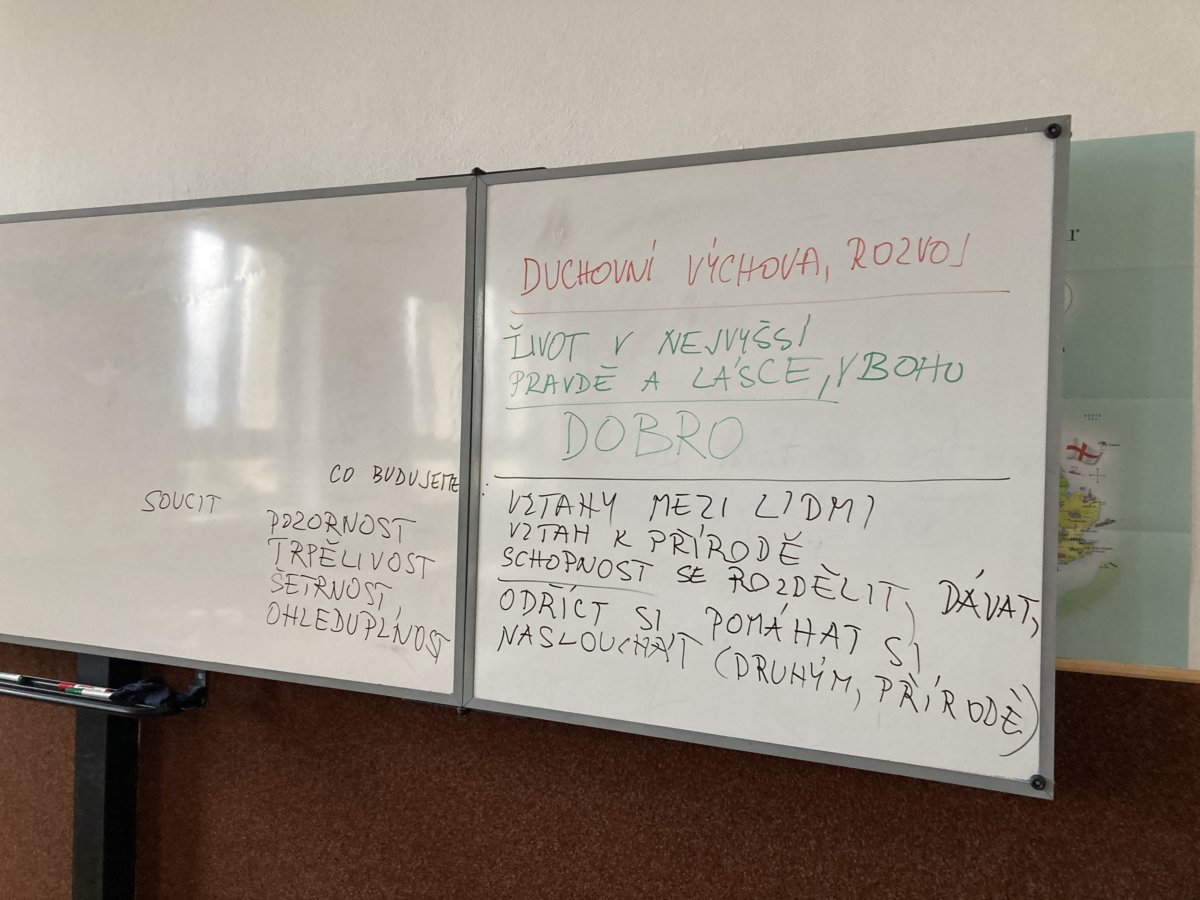 DUCHOVNÍ VÝCHOVA, ROZVOJ
ŽIVOT V NEJVYŠŠÍ
PRAVDĚ A LÁSCE, V BOHU
DOBRO
CO BUDUJEME:
SOUCIT
POZORNOST
TRPĚLIVOST
ŠETRNOST
OHLEDUPLNOST
VZTAHY MEZI LIDMI
VZTAH K PŘÍRODĚ
SCHOPNOST SE ROZDĚLIT, DÁVAT,
ODŘÍCT SI POMÁHAT SI
NASLOUCHAT (DRUHÝM, PŘÍRODĚ)
r